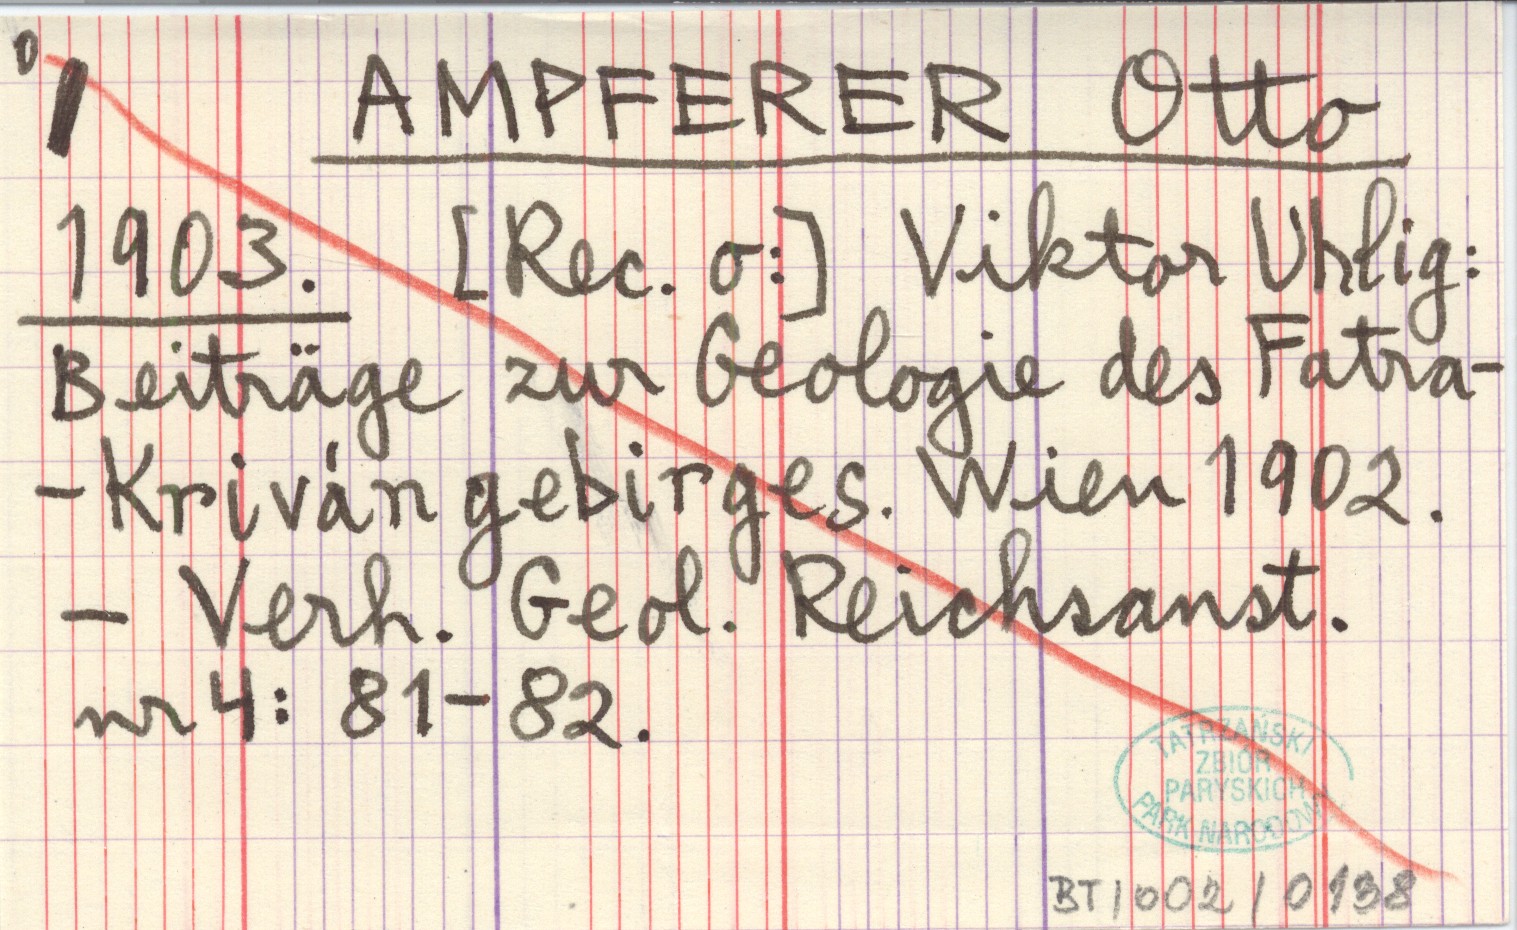 AMPFERER Otto
1903. [Rec. o:] Viktor Uhlig:
Beiträge zur Geologie des Fatra-
-Kriván gebirges. Wien 1902.
- Verh. Geol. Reichsanst.
nr 4: 81-82.
TATRZAŃSKI
ZBIÓR
PARYSKICH
PARK NARODOWY
BT/002/0138